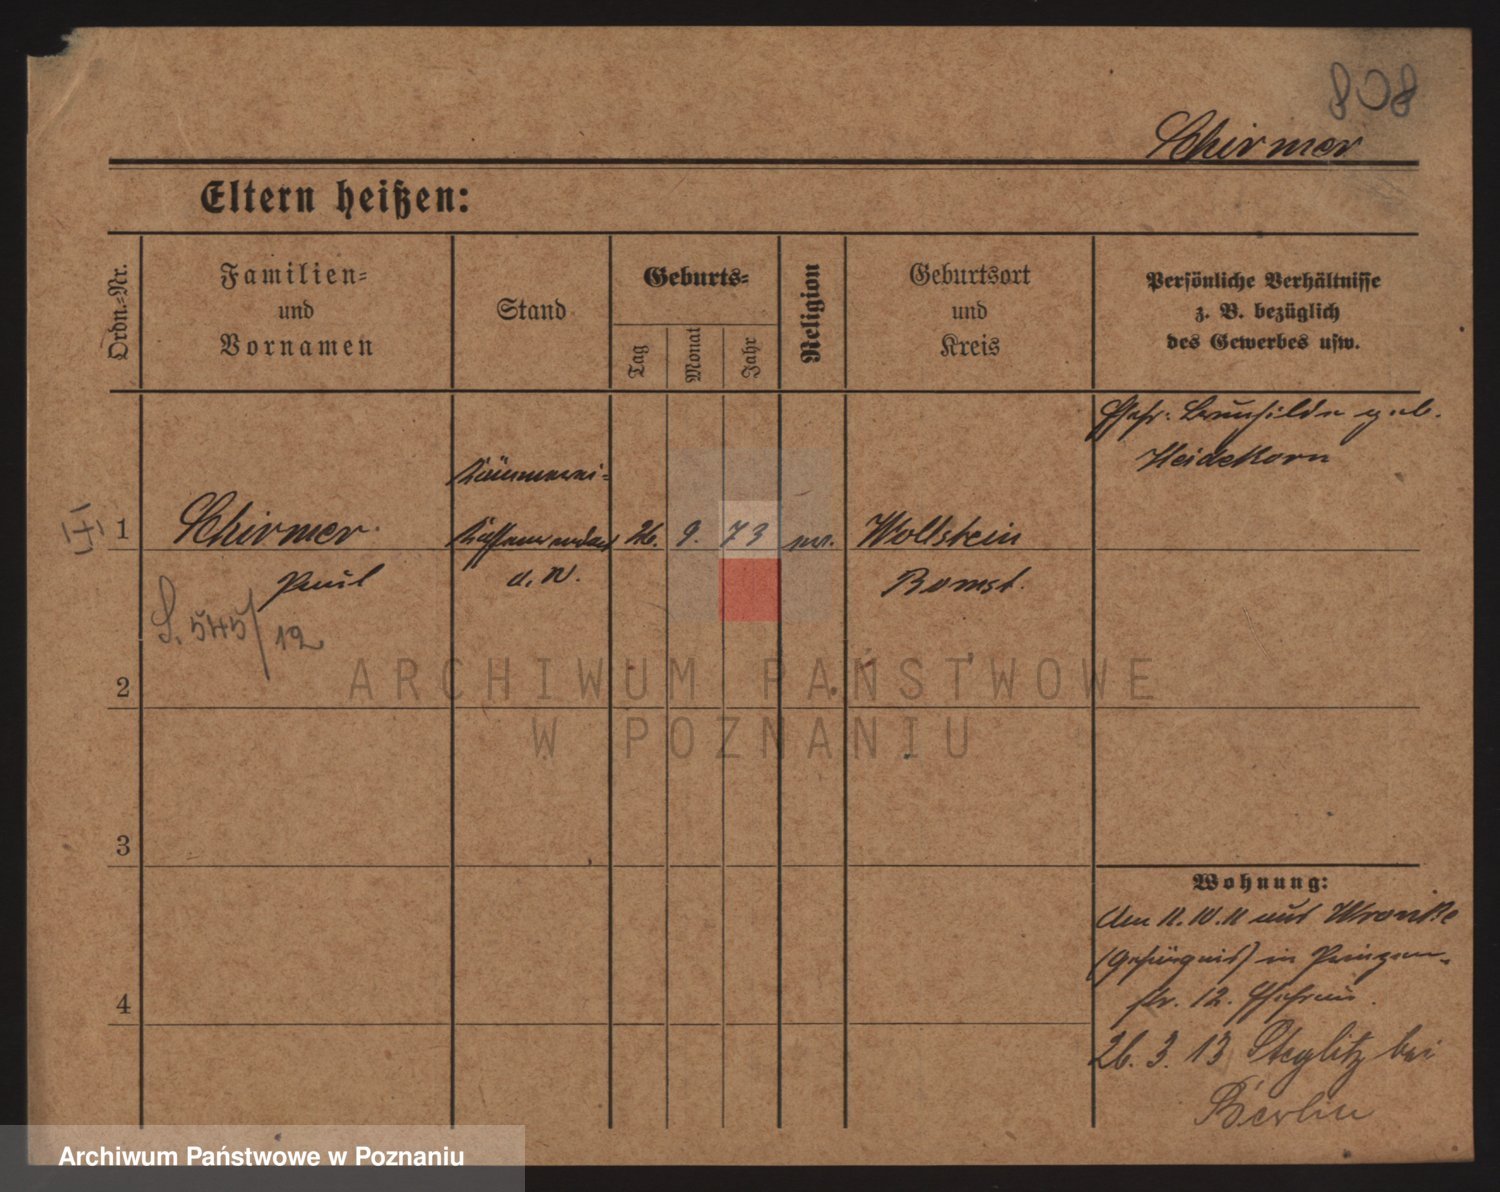 808
Schirmer
Eltern heißen:
Ordn.=Nr.
Familien=
und
Vornamen
Stand
Geburts=
Tag
Monat
Jahr
Religion
Geburtsort
und
Kreis
Persönliche Verhältnisse
z. B. bezüglich
des Gewerbes usw.
Ehefr: Brunhilde geb.
Heidekorn
1
Schirmer
Paul
Kämmerei-
d. D.
26.
9.
73
ev.
Wollstein
Bomst.
S. 545/12
2
3
4
Wohnung:
Am 11.10.11 aus Wronke
(Gefängnis) in Prinzen-
str. 12. Ehefrau.
26. 3. 13 Steglitz bei
Berlin
ARCHIWUM PAŃSTWOWE
W POZNANIU
Archiwum Państwowe w Poznaniu